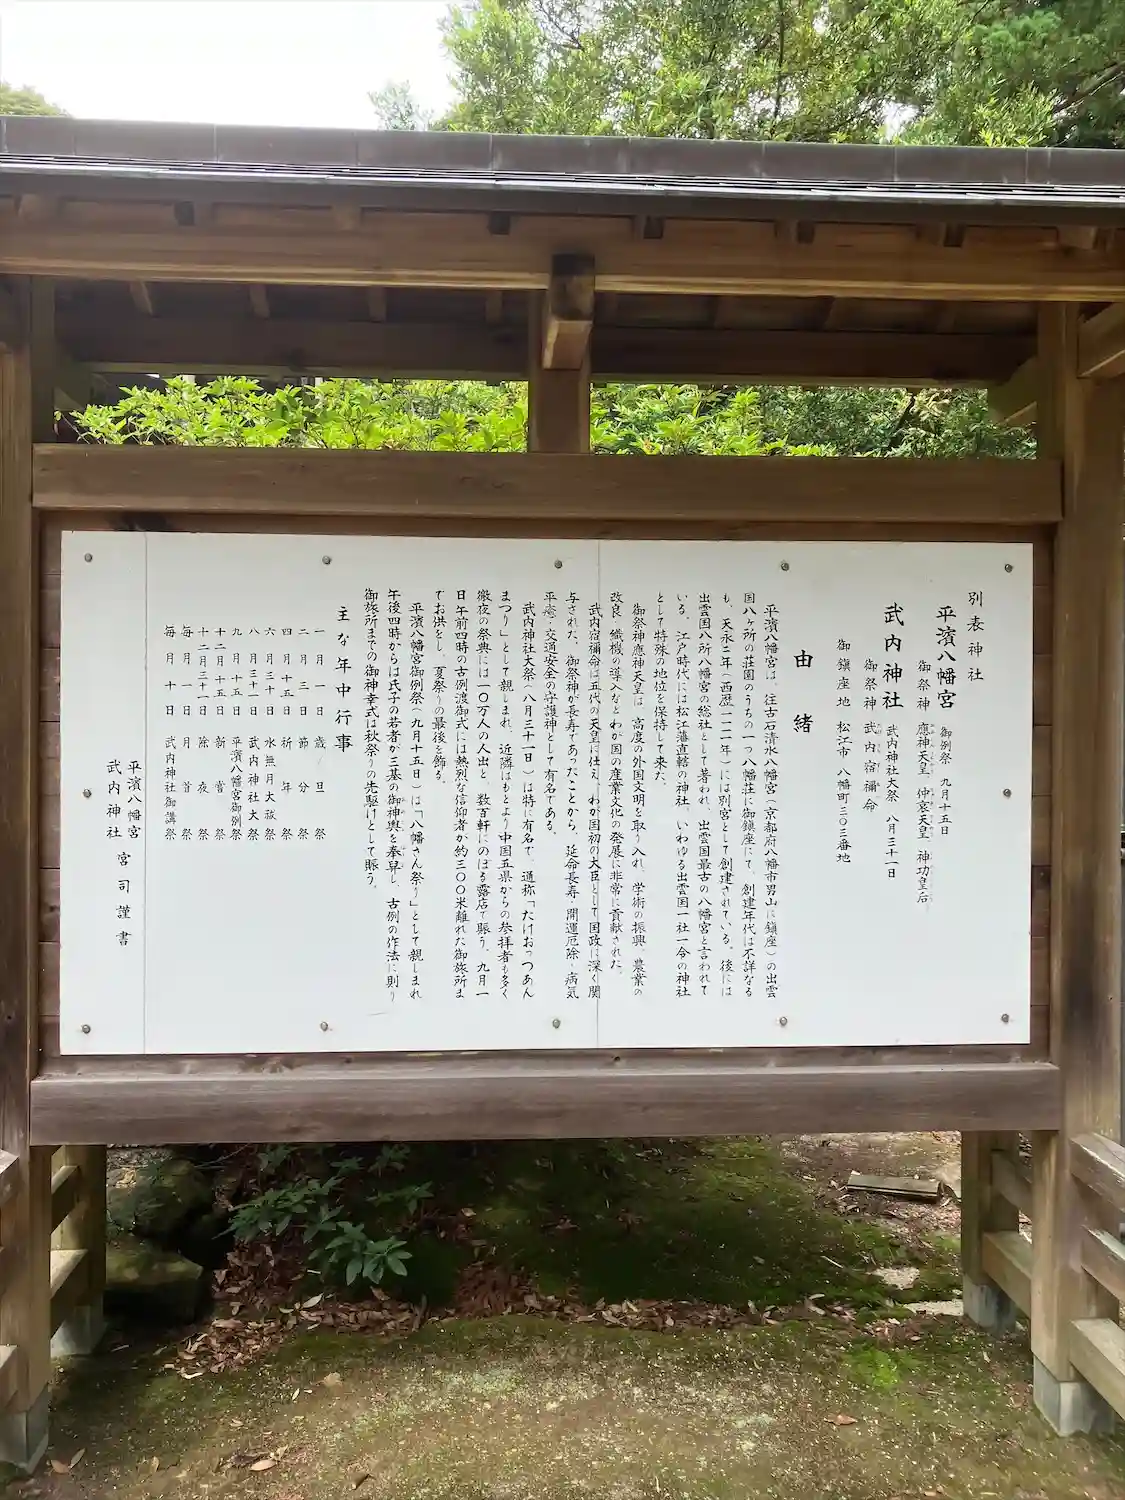 別表神社
平濱八幡宮 御例祭 九月十五日
御祭神 應神天皇、仲宮天皇、神功皇后
武内神社 武内神社大祭 八月三十一日
御祭神 武内宿禰命
御鎮座地 松江市 八幡町三〇三番地
由緒
平濱八幡宮は、往古石清水八幡宮(京都府八幡市男山に鎮座)の出雲
国八ヶ所の荘園のうちの一つ八幡荘に御鎮座にて、創建年代は不詳なる
も、天永二年(西歴一一一一年)には別宮として創建されている。後には
出雲国八所八幡宮の総社として著われ、出雲国最古の八幡宮と言われて
いる。江戸時代には松江藩直轄の神社、いわゆる出雲国一社一令の神社
として特殊の地位を保持して来た。
御祭神應神天皇は、高度の外国文明を取り入れ、学術の振興、農業の
改良、織機の導入などわが国の産業文化の発展に非常に貢献された。
武内宿禰命は五代の天皇に仕え、わが国初の大臣として国政に深く関
与された。御祭神が長寿であったことから、延命長寿・開運厄除・病気
平癒・交通安全の守護神として有名である。
武内神社大祭(八月三十一日)は特に有名で、通称「たけおっつあん
まつり」として親しまれ、近隣はもとより中国五県からの参拝者も多く
徹夜の祭典には一〇万人の人出と、数百軒にのぼる露店で賑う。九月一
日午前四時の古例渡御式には熱烈な信仰者が約三〇〇米離れた御旅所ま
でお供をし、夏祭りの最後を飾る。
平濱八幡宮御例祭(九月十五日)は「八幡さん祭り」として親しまれ
午後四時からは氏子の若者が三基の御神輿を奉舁し、古例の作法に則り
御旅所までの御神幸式は秋祭りの先駆けとして賑う。
主な年中行事
一月一日 歳旦祭
二月三日 節分祭
四月十五日 祈年祭
六月三十日 水無月大祓
八月三十一日 武内神社大祭
九月十五日 平濱八幡宮御例祭
十二月十五日 新嘗祭
十二月三十一日 除夜祭
毎月一日 月首祭
毎月十日 武内神社御講祭
平濱八幡宮
武内神社 宮司謹書